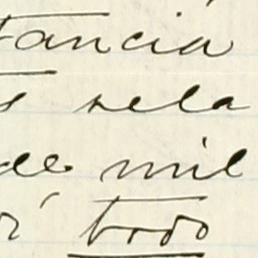 tancia
s sela
de mil
todo